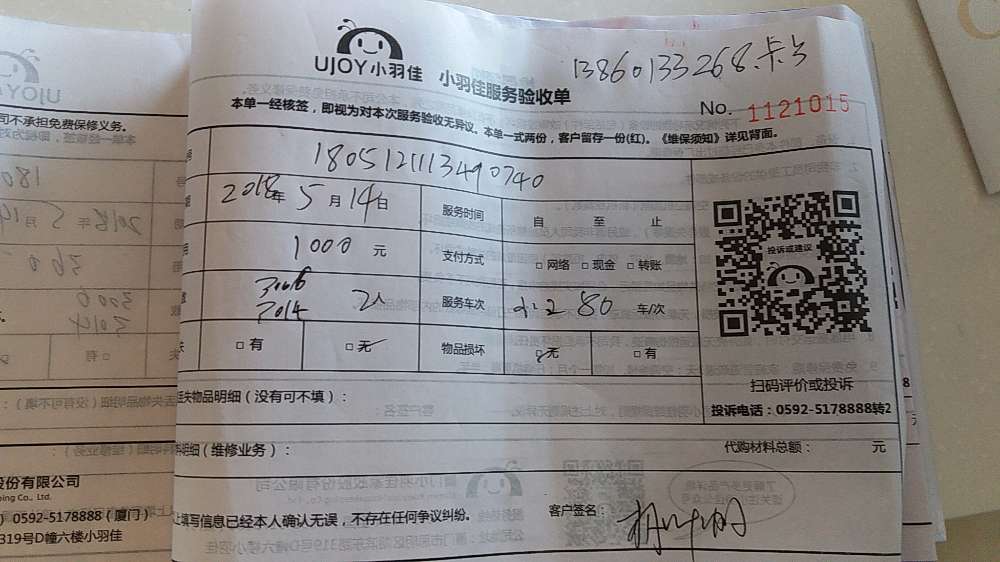 UJOY小羽佳
小羽佳服务验收单
13860133268.
No. 1121015
本单一经核签，即视为对本次服务验收无异议。本单一式两份，客户留存一份(红)。《维保须知》详见背面。
180512111349 0740
2018年 5月 14日
服务时间
自 至 止
1000 元
支付方式
□网络 □现金 □转账
3006
2014
2人
服务车次
280 车/次
□有 □无
物品损坏
□无 □有
投诉或建议
扫码评价或投诉
投诉电话：0592-5178888转2
失物品明细（没有可不填）：
明细（维修业务）：
代购材料总额： 元
上填写信息已经本人确认无误，不存在任何争议纠纷。
客户签名：
司不承担免费保修义务。
股份有限公司
ping Co., Ltd.
) 0592-5178888（厦门）
319号D幢六楼小羽佳